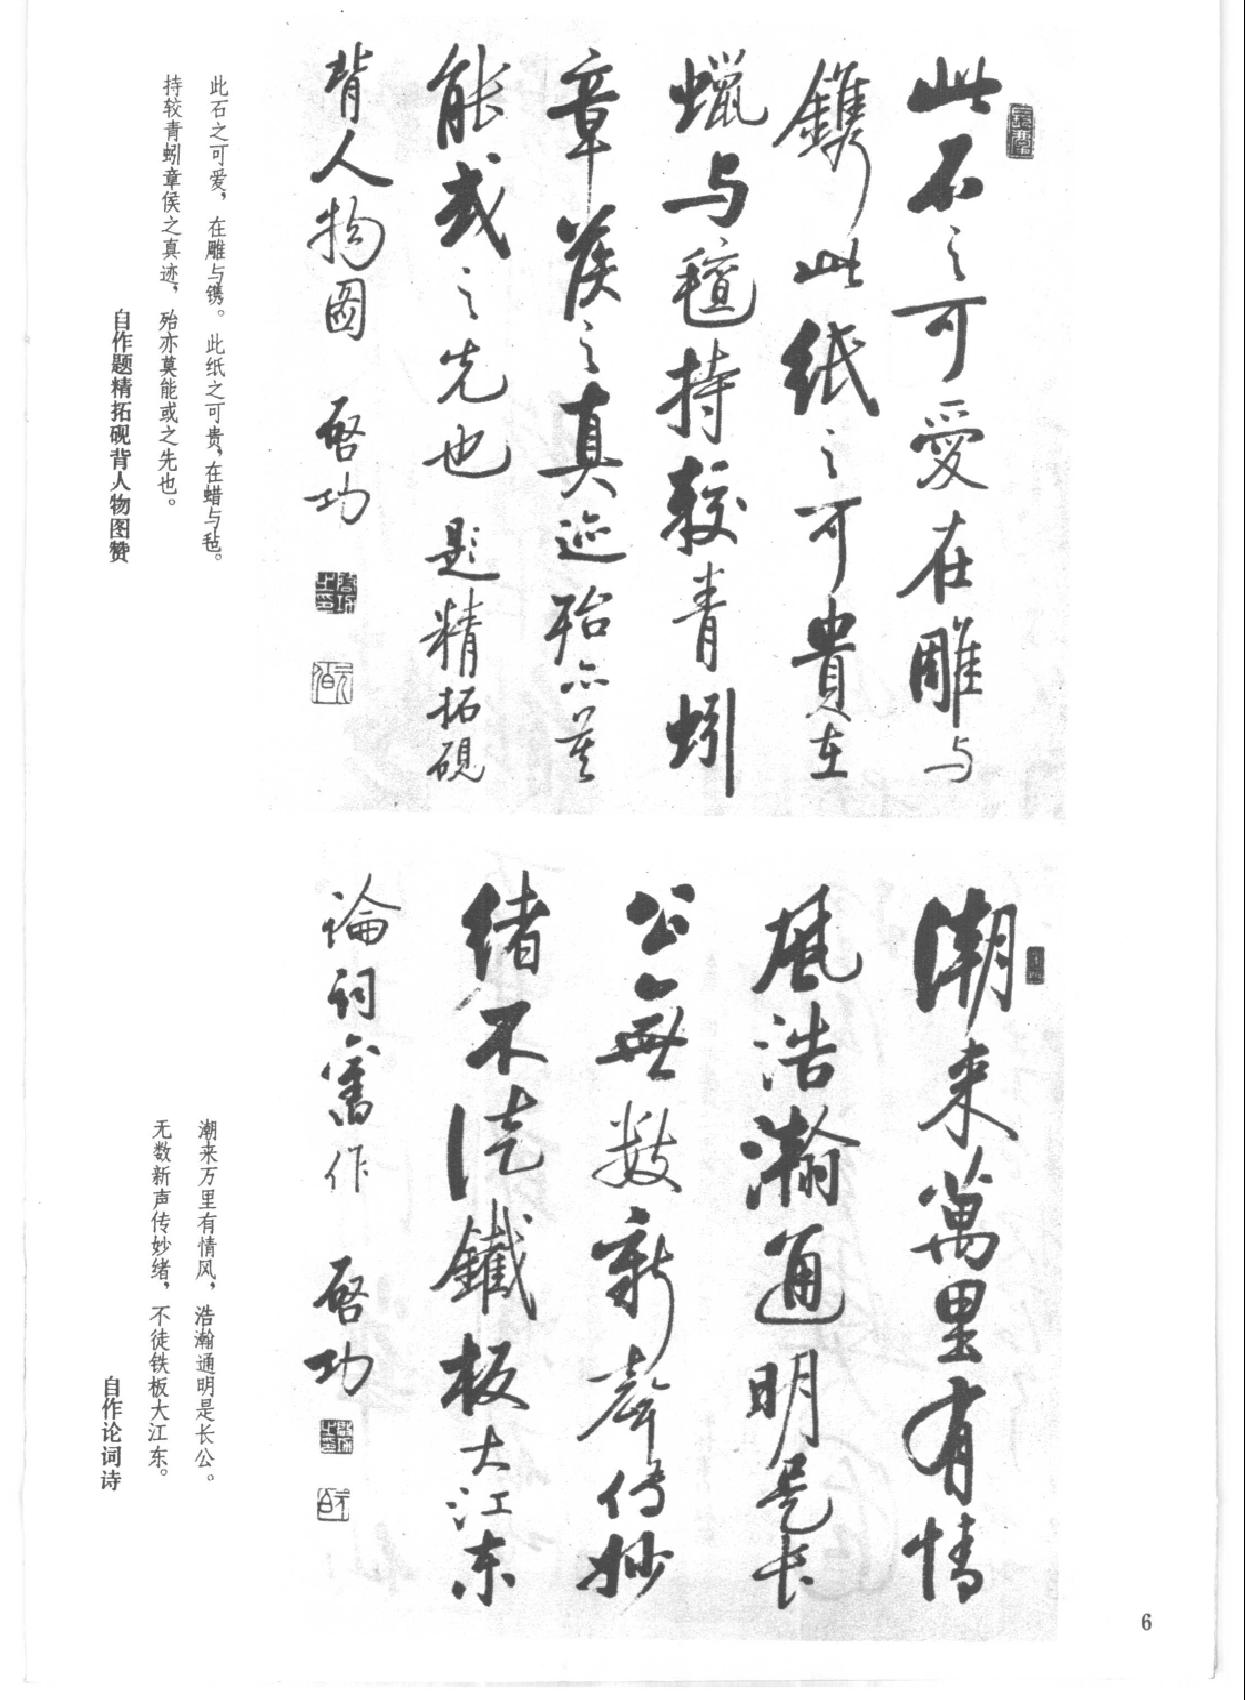 此石之可愛在雕与
鐫此紙之可貴在
蠟与氊持較青蚓
章侯之真迹殆亦莫
能或之先也 題精拓硯
背人物圖 啓功
此石之可爱，在雕与镌。此纸之可贵，在蜡与毡。
持较青蚓章侯之真迹，殆亦莫能或之先也。
自作题精拓砚背人物图赞
潮来萬里有情
風浩瀚通明是长
公無数新聲傳妙
绪不徒鐵板大江东
論詞舊作 啓功
潮来万里有情风，浩瀚通明是长公。
无数新声传妙绪，不徒铁板大江东。
自作论词诗
6